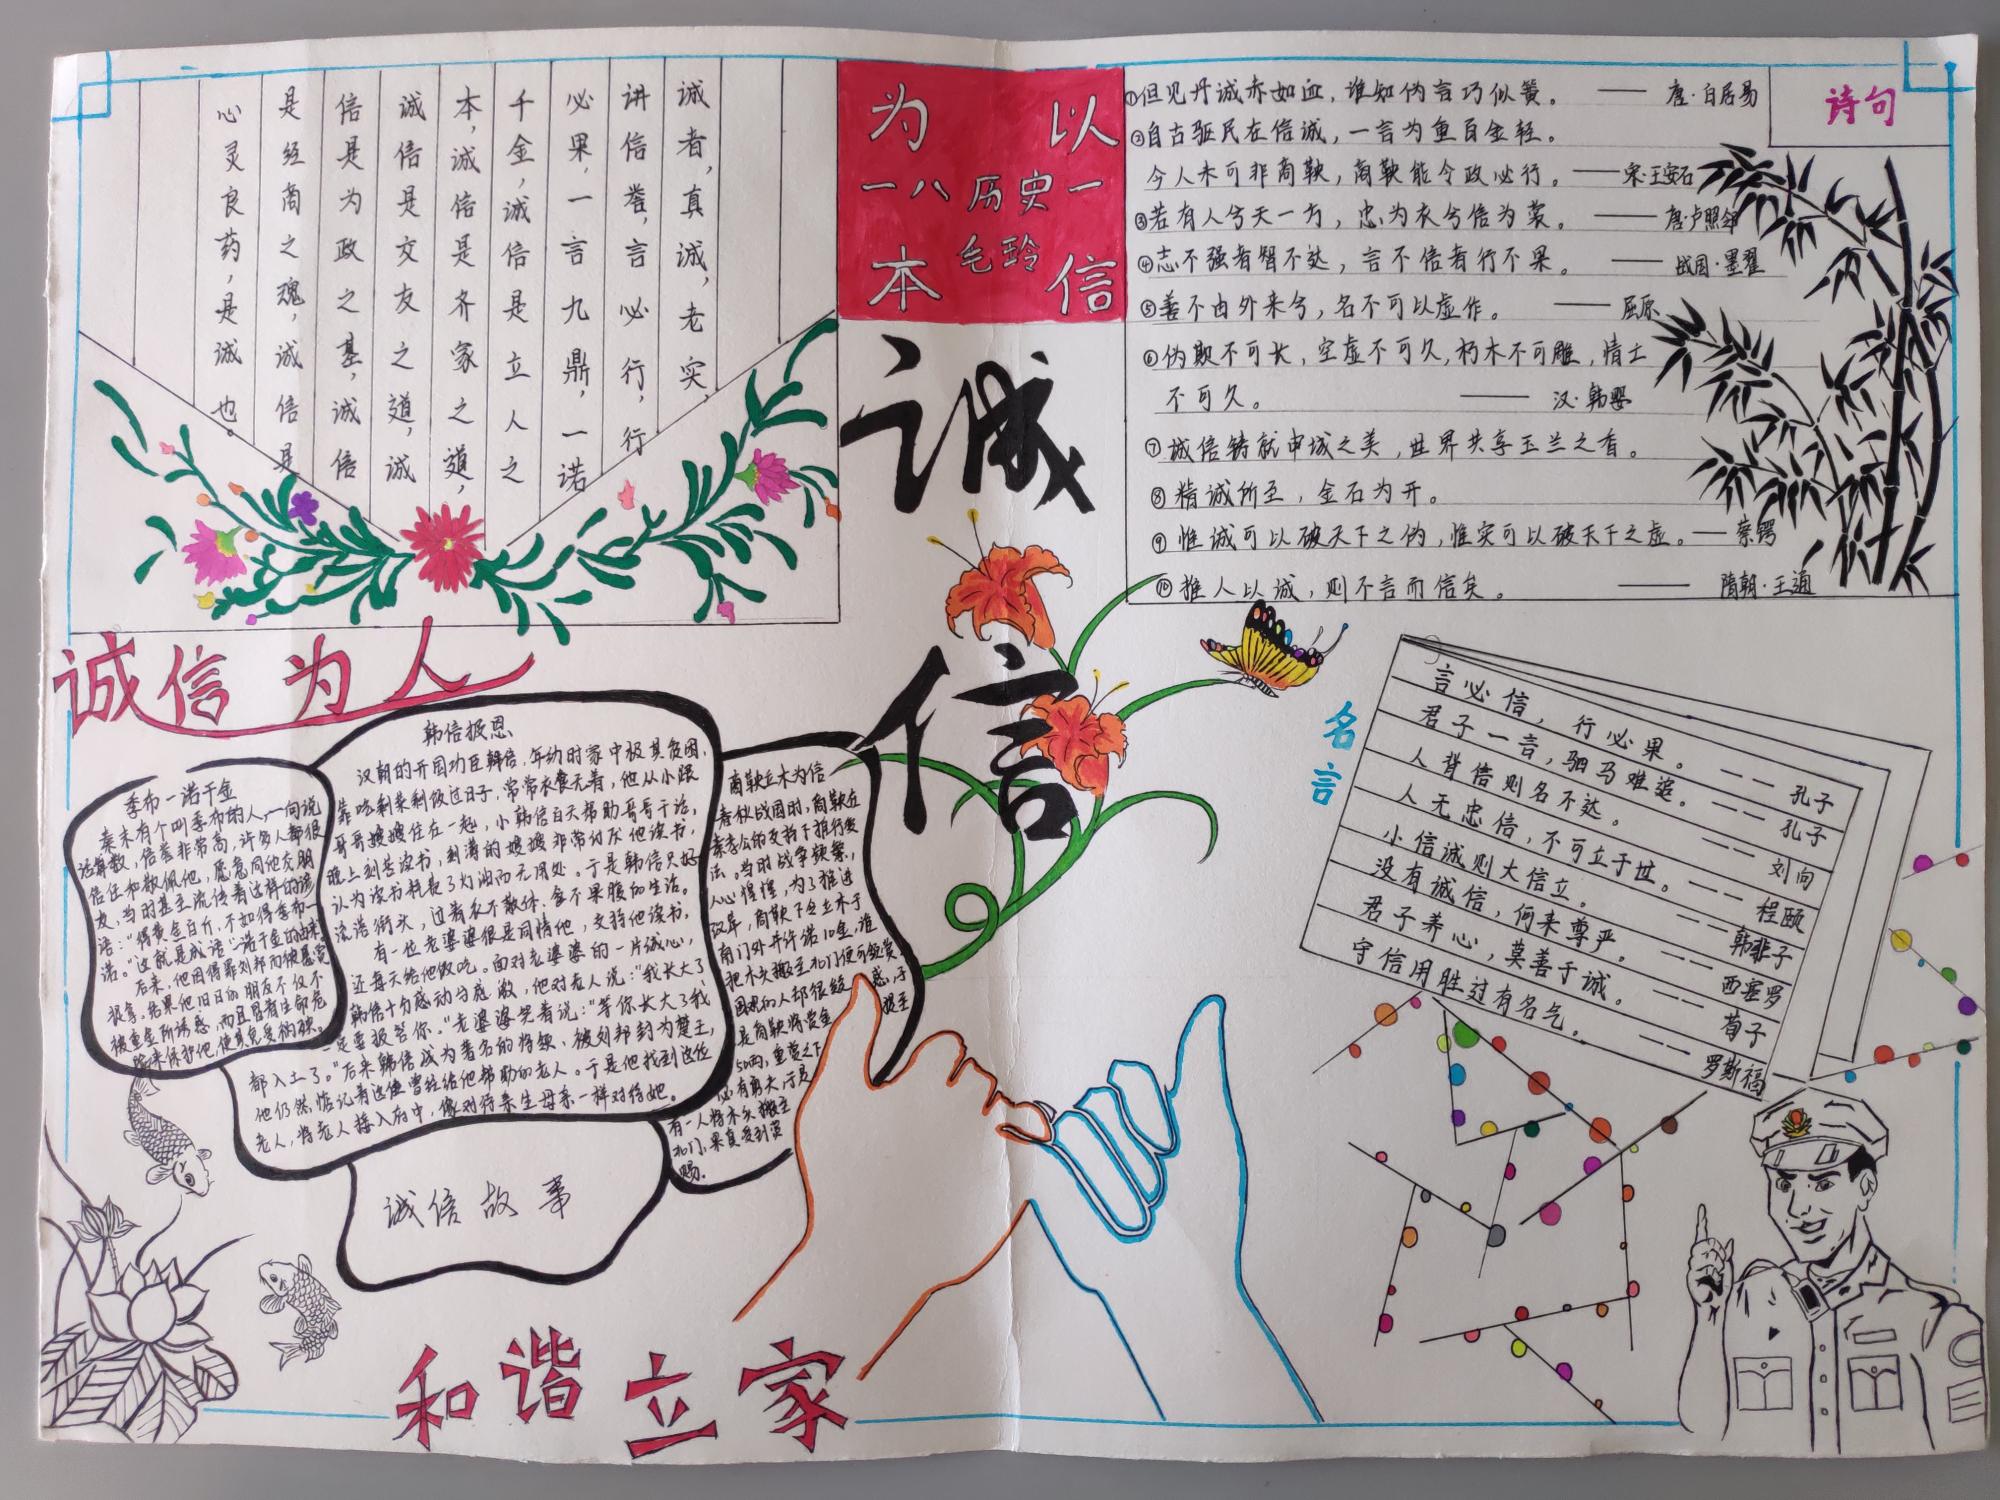 诚者，真诚，老实，
讲信誉，言必行，行
必果，一言九鼎，一诺
千金，诚信是立人之
本，诚信是齐家之道，
诚信是交友之道，诚
信是为政之基，诚信
是经商之魂，诚信是
心灵良药，是诚也。
以信
为本
一八历史一
毛玲
诚
信
诗句
①但见丹诚赤如血，谁知伪言巧似簧。——唐·白居易
②自古驱民在信诚，一言为重百金轻。
今人未可非商鞅，商鞅能令政必行。——宋·王安石
③若有人兮天一方，忠为衣兮信为裳。——唐·卢照邻
④志不强者智不达，言不信者行不果。——战国·墨翟
⑤善不由外来兮，名不可以虚作。——屈原
⑥伪欺不可长，空虚不可久，朽木不可雕，情士
不可久。——汉·韩婴
⑦诚信铸就申城之美，世界共享玉兰之香。
⑧精诚所至，金石为开。
⑨惟诚可以破天下之伪，惟实可以破天下之虚。——蔡锷
⑩推人以诚，则不言而信矣。——隋朝·王通
诚信为人
季布一诺千金
秦末有个叫季布的人，一向说
话算数，信誉非常高，许多人都很
信任和敬佩他，愿意同他交朋
友，当时甚至流传着这样的谚
语："得黄金百斤，不如得季布一
诺。"这就是成语"一诺千金的由来
后来，他因得罪刘邦而被悬赏
捉拿。结果他旧日的朋友不仅不
被重金所诱惑，而且冒着生命危
韩信报恩
汉朝的开国功臣韩信，年幼时家中极其贫困，
靠吃剩菜剩饭过日子，常常衣食无着，他从小跟
哥哥嫂嫂住在一起，小韩信白天帮助哥哥干活，
晚上刻苦读书，刻薄的嫂嫂非常讨厌他读书，
认为读书耗费了灯油而无用处。于是韩信只好
流落街头，过着衣不蔽体、食不果腹的生活。
有一位老婆婆很是同情他，支持他读书，
还每天给他饭吃。面对老婆婆的一片诚心，
韩信十分感动与感激，他对老人说："我长大了
一定要报答你。"老婆婆笑着说："等你长大了我
都入土了。"后来韩信成为著名的将领，被刘邦封为楚王，
他仍然惦记着这位曾经给他帮助的老人。于是他找到这位
老人，将老人接入府中，像对待亲生母亲一样对待她。
商鞅立木为信
春秋战国时，商鞅在
秦孝公的支持下推行变
法。当时战争频繁，
人心惶惶，为了推进
改革，商鞅下令立木于
南门外并许诺10金，谁
把木头搬至北门便可领赏
是商鞅将赏金
50两，重赏之下
必有勇夫，于是
有一人将木头搬至
北门，果真受到赏
赐。
诚信故事
名言
言必信，行必果。——孔子
君子一言，驷马难追。——孔子
人背信则名不达。——刘向
人无忠信，不可立于世。——程颐
小信诚则大信立。——韩非子
没有诚信，何来尊严。——西塞罗
君子养心，莫善于诚。——荀子
守信用胜过有名气。——罗斯福
和谐立家